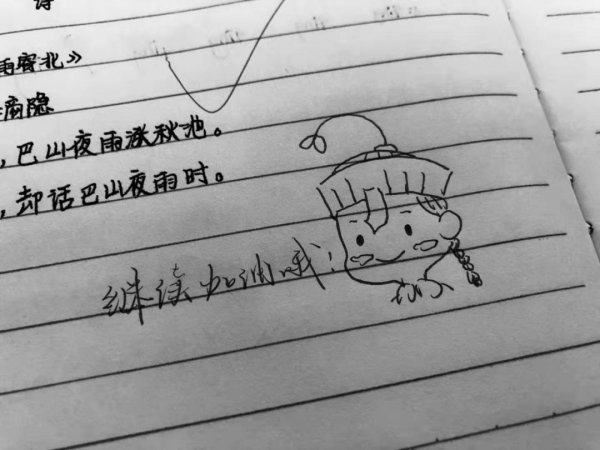 诗
雨寄北》
商隐
，巴山夜雨涨秋池。
，却话巴山夜雨时。
继续加油哦！